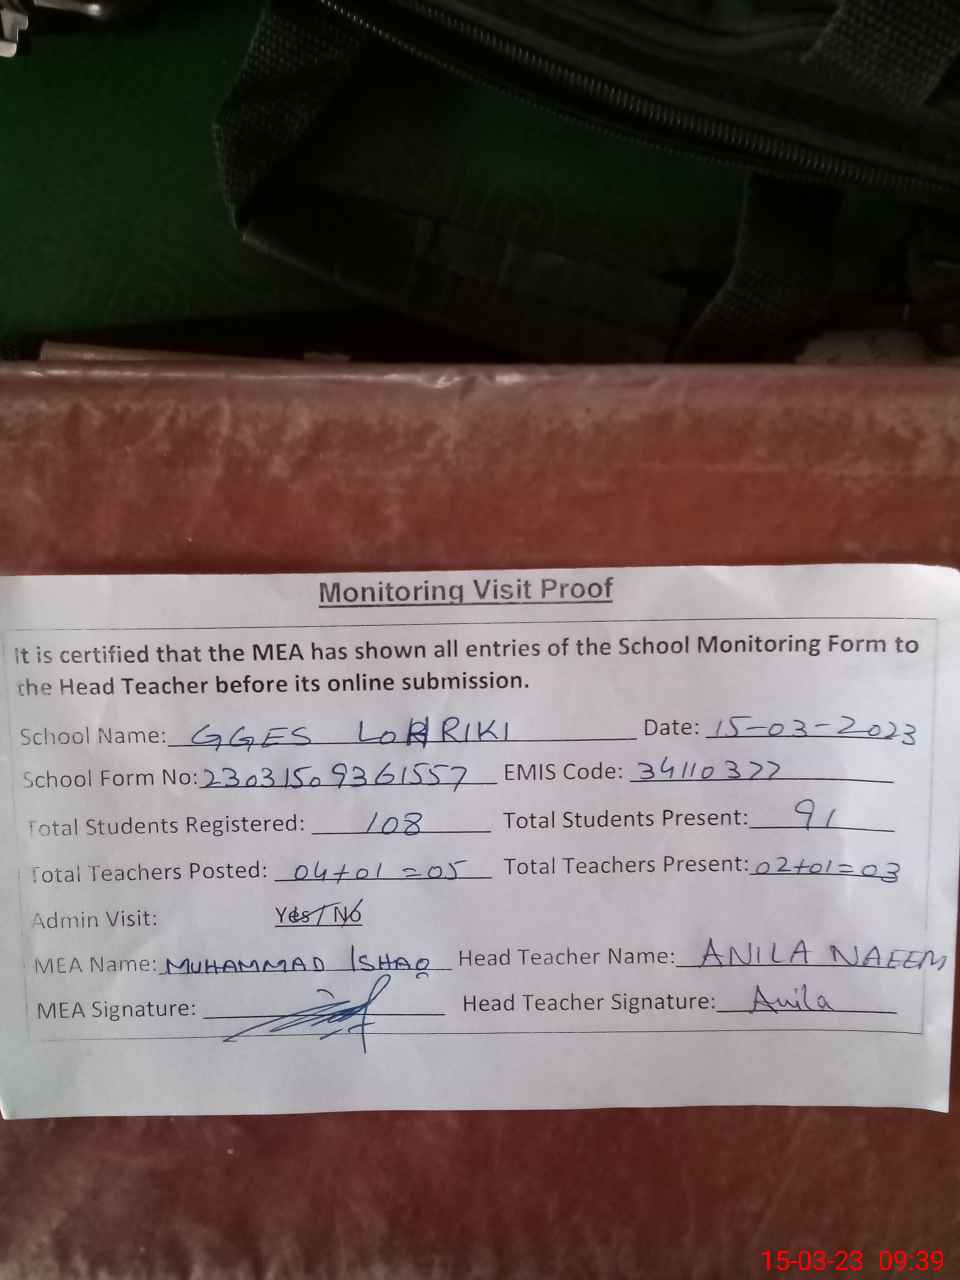 Monitoring Visit Proof
It is certified that the MEA has shown all entries of the School Monitoring Form to
the Head Teacher before its online submission.
School Name: GGES LOHRIKI Date: 15-03-2023
School Form No: 23031509361557 EMIS Code: 34110377
Total Students Registered: 108 Total Students Present: 91
Total Teachers Posted: 04+01=05 Total Teachers Present: 02+01=03
Admin Visit: Yes/No
MEA Name: MUHAMMAD ISHAQ Head Teacher Name: ANILA NAEEM
MEA Signature: Head Teacher Signature: Anila
15-03-23 09:39